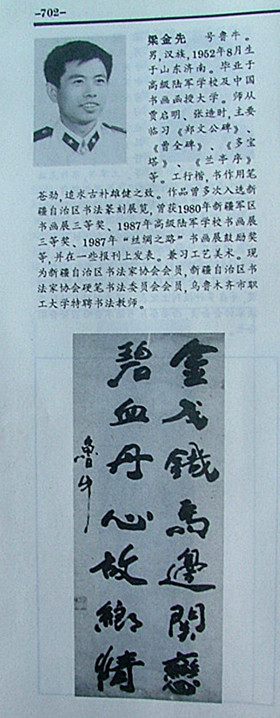 -702-
梁金先 号鲁牛。
男,汉族,1952年8月生
于山东济南。毕业于
高级陆军学校及中国
书画函授大学。师从
贾启明、张造时,主要
临习《郑文公碑》、
《曹全碑》、《多宝
塔》、《兰亭序》
等。工行楷,书作用笔
苍劲,追求古朴雄健之致。作品曾多次入选新
疆自治区书法篆刻展览,曾获1980年新疆军区
书画展三等奖、1987年高级陆军学校书画展
三等奖、1987年“丝绸之路”书画展鼓励奖
等,并在一些报刊上发表。兼习工艺美术。现
为新疆自治区书法家协会会员,新疆自治区书
法家协会硬笔书法委员会会员,乌鲁木齐市职
工大学特聘书法教师。
金戈鐵馬邊関戀
碧血丹心故鄉情
魯牛